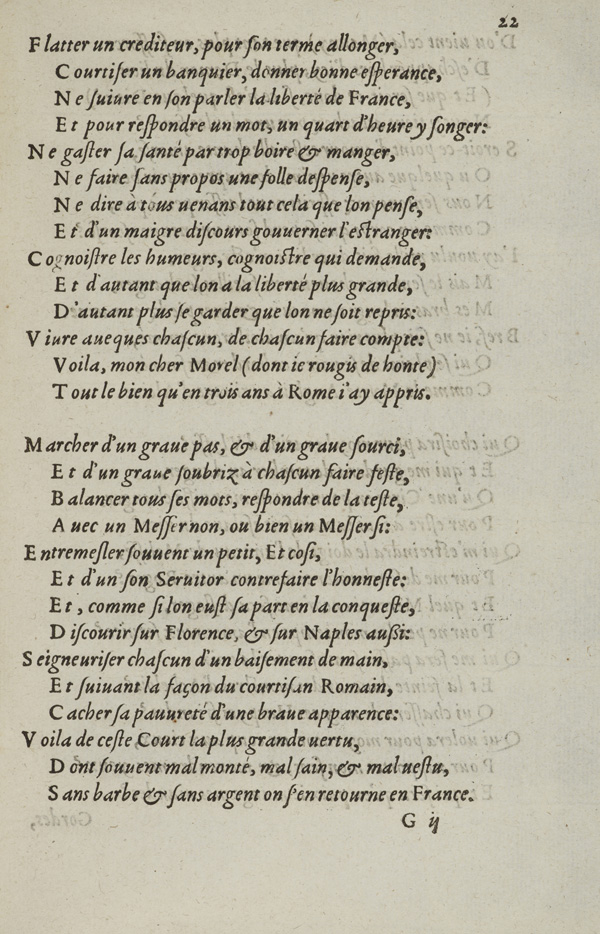 22
Flatter un crediteur, pour ſon terme allonger,
Courtiſer un banquier, donner bonne eſperance,
Ne ſuiure en ſon parler la liberté de France,
Et pour reſpondre un mot, un quart d'heure y ſonger:
Ne gaſter ſa ſanté par trop boire & manger,
Ne faire ſans propos une folle deſpenſe,
Ne dire à tous uenans tout cela que lon penſe,
Et d'un maigre diſcours gouuerner l'eſtranger:
Cognoiſtre les humeurs, cognoiſtre qui demande,
Et d'autant que lon a la liberté plus grande,
D'autant plus ſe garder que lon ne ſoit repris:
Viure aueques chaſcun, de chaſcun faire compte:
Voila, mon cher Morel (dont ie rougis de honte)
Tout le bien qu'en trois ans à Rome i'ay appris.
Marcher d'un graue pas, & d'un graue ſourci,
Et d'un graue ſoubriz à chaſcun faire feſte,
Balancer tous ſes mots, reſpondre de la teſte,
Auec un Meſſer non, ou bien un Meſſer ſi:
Entremeſler ſouuent un petit, Et coſi,
Et d'un ſon Seruitor contrefaire l'honneſte:
Et, comme ſi lon euſt ſa part en la conqueſte,
Diſcourir ſur Florence, & ſur Naples auſſi:
Seigneuriſer chaſcun d'un baiſement de main,
Et ſuiuant la façon du courtiſan Romain,
Cacher ſa pauureté d'une braue apparence:
Voila de ceſte Court la plus grande uertu,
Dont ſouuent mal monté, mal ſain, & mal ueſtu,
Sans barbe & ſans argent on ſ'en retourne en France.
G ij